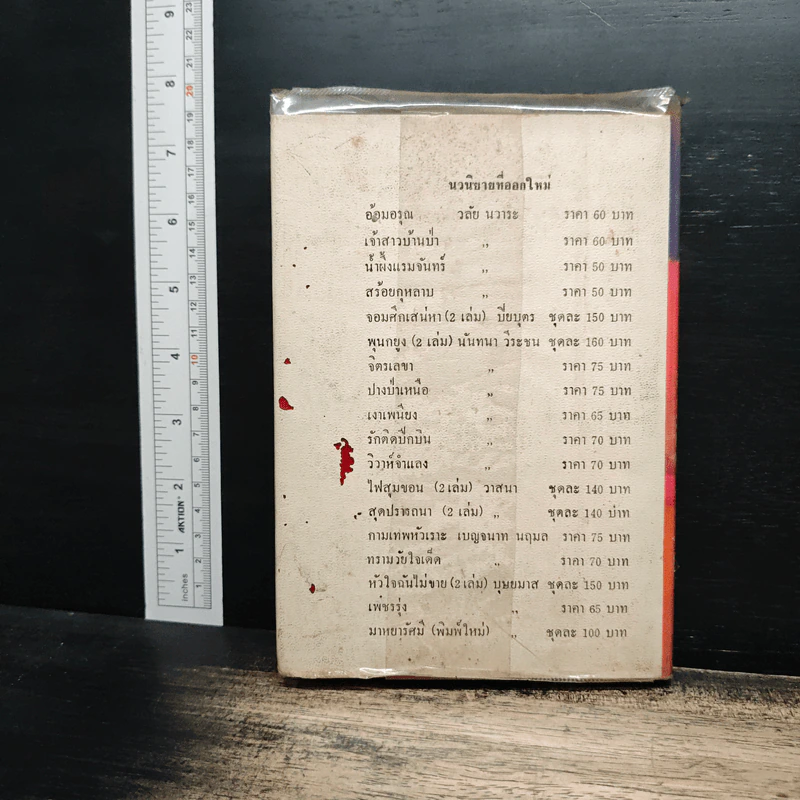 นวนิยายที่ออกใหม่
อ้อมอรุณ วลัย นวาระ ราคา 60 บาท
เจ้าสาวบ้านป่า ,, ราคา 60 บาท
น้ำผึ้งแรมจันทร์ ,, ราคา 50 บาท
สร้อยกุหลาบ ,, ราคา 50 บาท
จอมศึกเสน่หา (2 เล่ม) ปิยบุตร ชุดละ 150 บาท
พุนกยูง (2 เล่ม) นันทนา วีระชน ชุดละ 160 บาท
จิตรเลขา ,, ราคา 75 บาท
ปางป่าเหนือ ,, ราคา 75 บาท
เงาเพนียง ,, ราคา 65 บาท
รักติดปีกบิน ,, ราคา 70 บาท
วิวาห์จำแลง ,, ราคา 70 บาท
ไฟสุมขอน (2 เล่ม) วาสนา ชุดละ 140 บาท
สุดปรารถนา (2 เล่ม) ,, ชุดละ 140 บาท
กามเทพหัวเราะ เบญจนาท นฤมล ราคา 75 บาท
ทรามวัยใจเด็ด ,, ราคา 70 บาท
หัวใจฉันไม่ขาย (2 เล่ม) บุษยมาส ชุดละ 150 บาท
เพ็ชรรุ่ง ,, ราคา 65 บาท
มาหยารัศมี (พิมพ์ใหม่) ,, ชุดละ 100 บาท
inches 1 2 3 4 5 6 7 8 9
AKTION
1 2 3 4 5 6 7 8 9 10 11 12 13 14 15 16 17 18 19 20 21 22 23